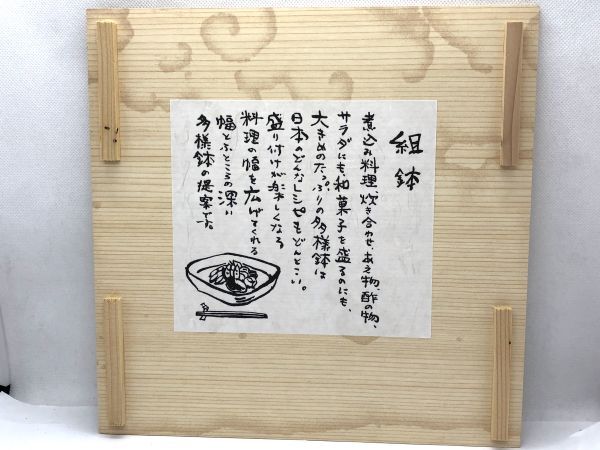 組鉢
煮込み料理、炊き合わせ、あえ物、酢の物、
サラダにも和菓子を盛るのにも、
大きめのたっぷりの多様鉢は
日本のどんなレシピもどんとこい。
盛り付けが楽しくなる
料理の幅を広げてくれる
幅とふところの深い
多様鉢の提案です。